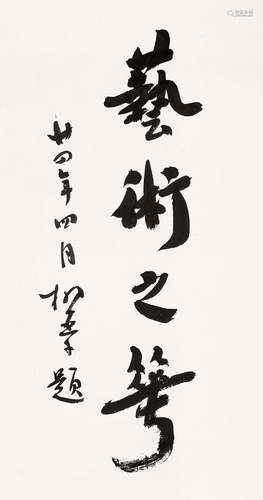 藝術之
廿四年四月柳亞子題